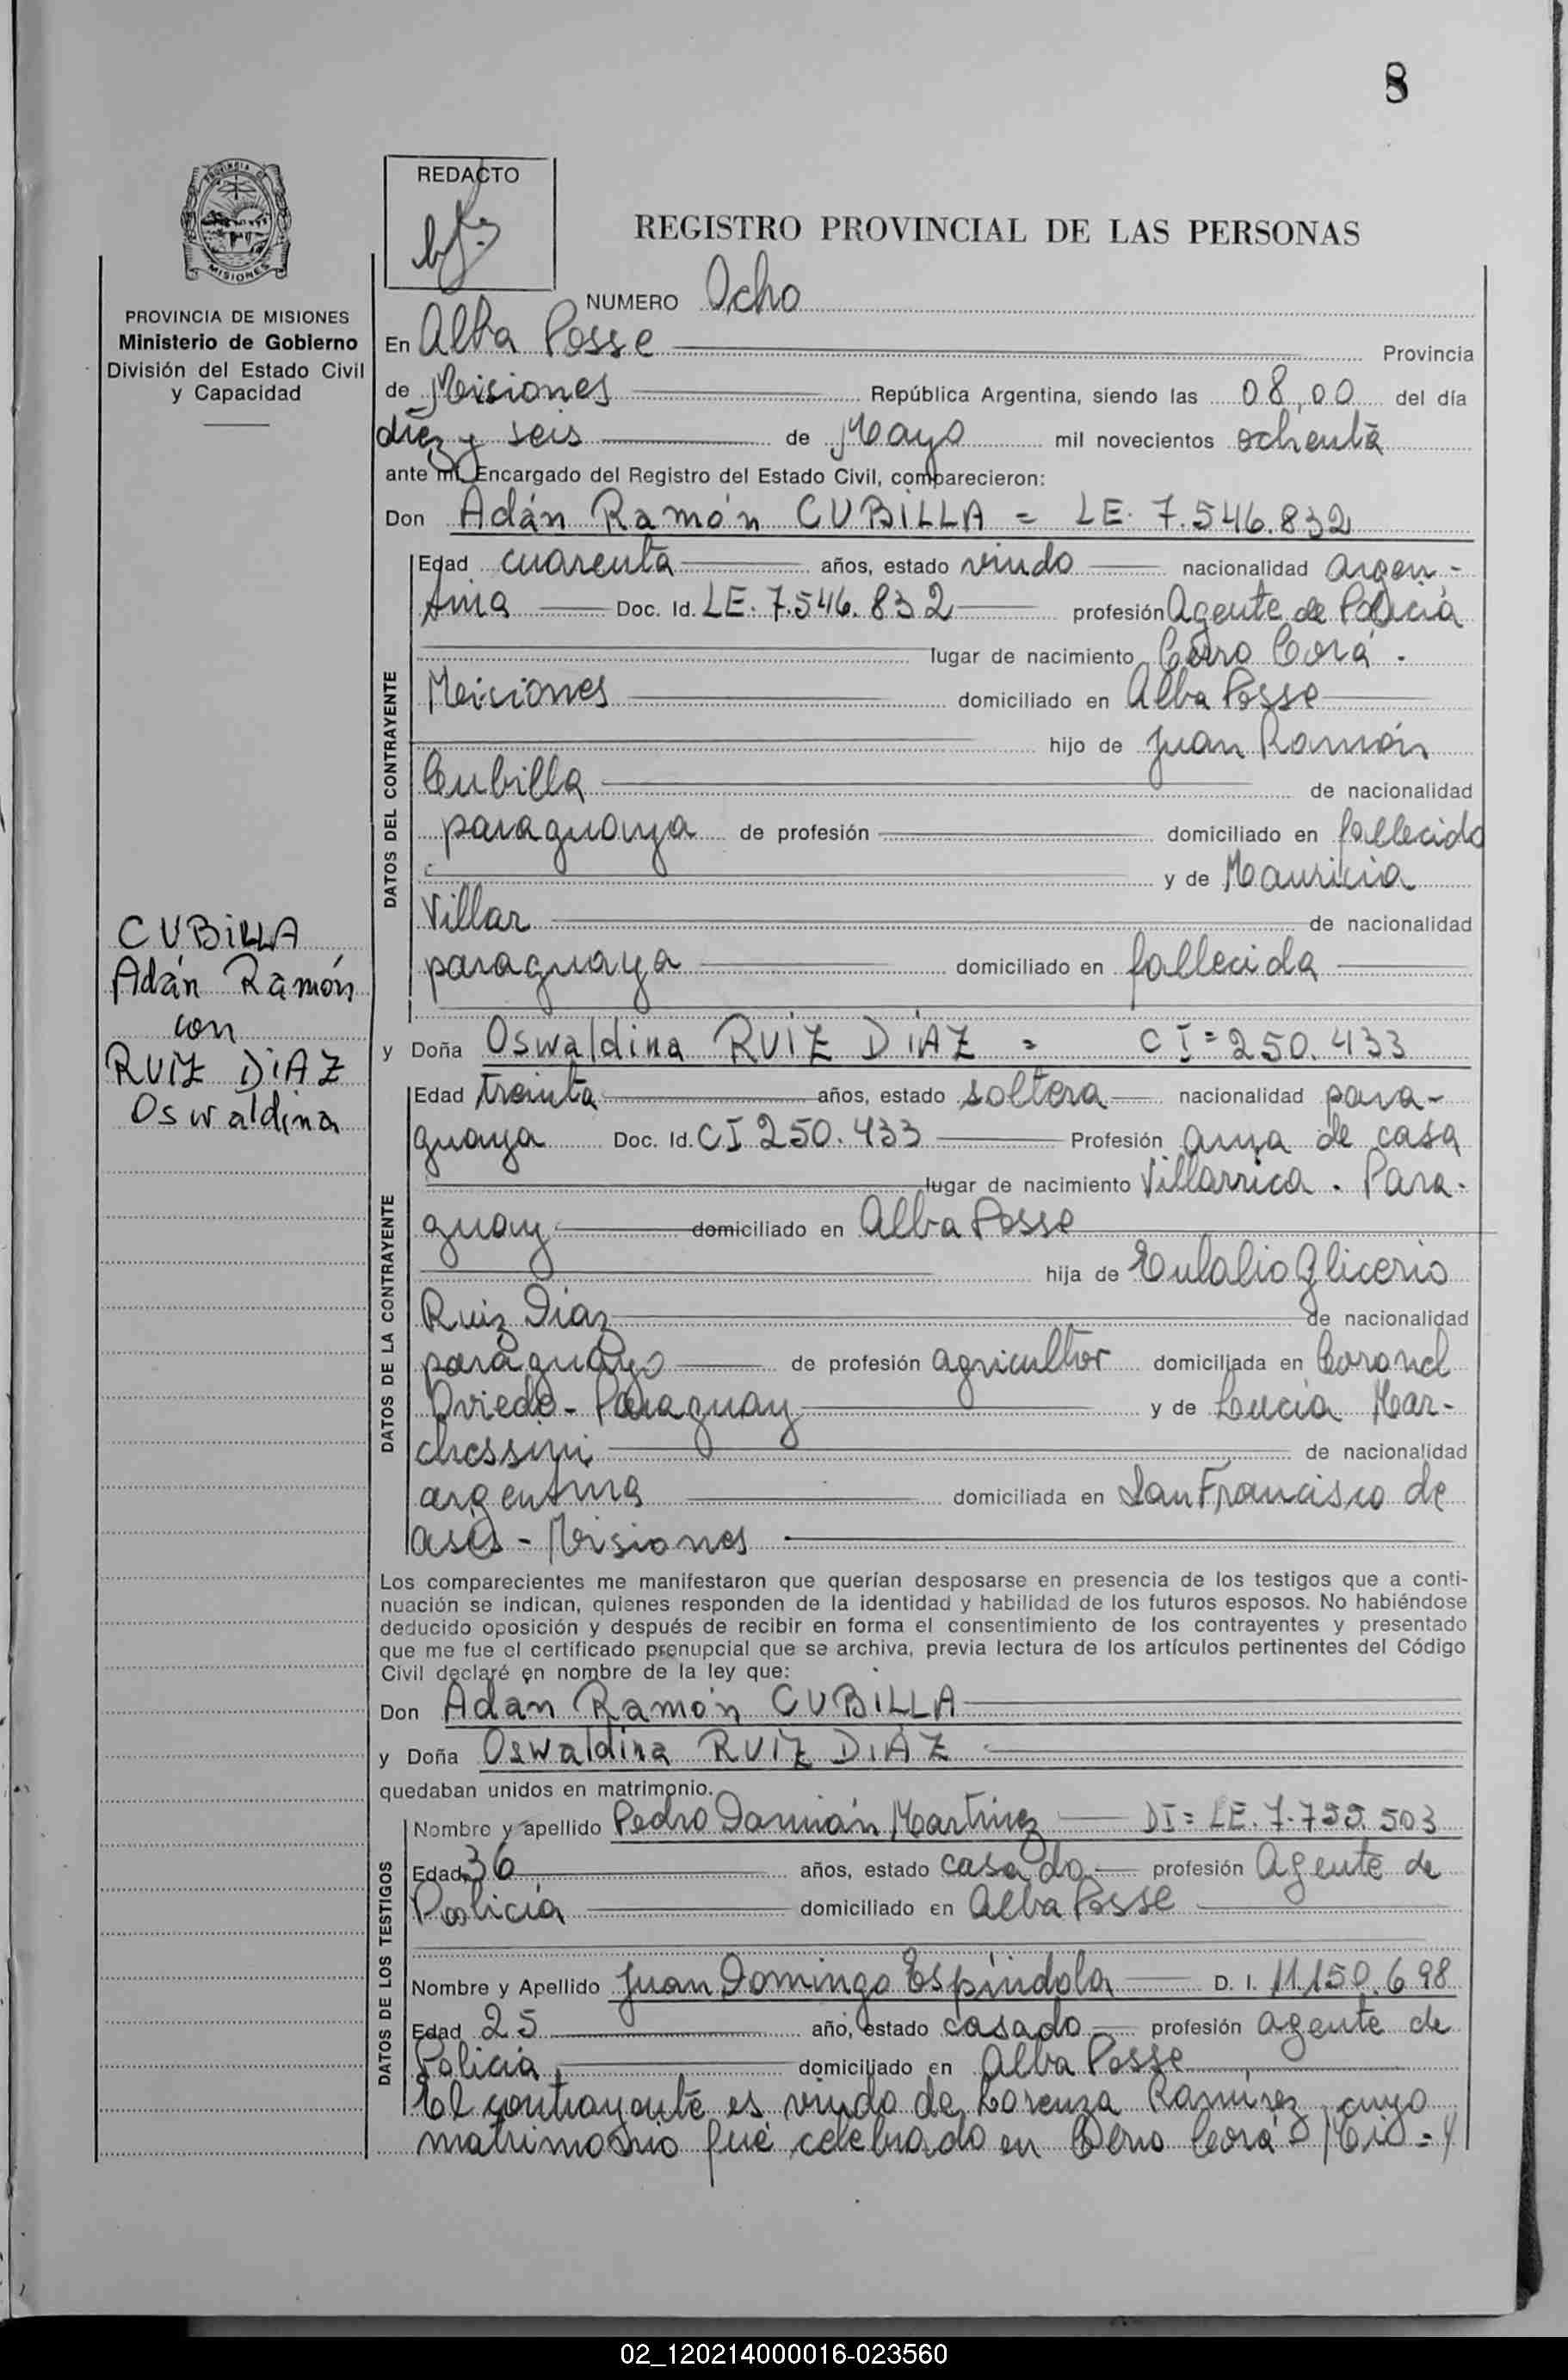 8
REDACTO
REGISTRO PROVINCIAL DE LAS PERSONAS
PROVINCIA DE MISIONES
Ministerio de Gobierno
División del Estado Civil
y Capacidad
NUMERO Ocho
En Alba Posse Provincia
de Misiones República Argentina, siendo las 08,00 del día
diez y seis de Mayo mil novecientos ochenta
ante mí, Encargado del Registro del Estado Civil, comparecieron:
Don Adán Ramón CUBILLA = LE. 7.546.832
DATOS DEL CONTRAYENTE
Edad cuarenta años, estado viudo nacionalidad argen-
tina Doc. Id. LE. 7.546.832 profesión Agente de Policía
lugar de nacimiento Cerro Corá.
Misiones domiciliado en Alba Posse
hijo de Juan Ramón
Cubilla de nacionalidad
paraguaya de profesión domiciliado en fallecido
y de Mauricia
Villar de nacionalidad
paraguaya domiciliado en fallecida
CUBILLA
Adán Ramón
con
RUIZ DIAZ
Oswaldina
y Doña Oswaldina RUIZ DIAZ = CI=250.433
DATOS DE LA CONTRAYENTE
Edad treinta años, estado soltera nacionalidad para-
guaya Doc. Id. CI 250.433 Profesión ama de casa
lugar de nacimiento Villarrica. Para-
guay domiciliado en Alba Posse
hija de Eulalio Glicerio
Ruiz Diaz de nacionalidad
paraguayo de profesión agricultor domiciliada en Coronel
Oviedo - Paraguay y de Lucia Mar-
chessini de nacionalidad
argentina domiciliada en San Francisco de
asís - Misiones
Los comparecientes me manifestaron que querían desposarse en presencia de los testigos que a conti-
nuación se indican, quienes responden de la identidad y habilidad de los futuros esposos. No habiéndose
deducido oposición y después de recibir en forma el consentimiento de los contrayentes y presentado
que me fue el certificado prenupcial que se archiva, previa lectura de los artículos pertinentes del Código
Civil declaré en nombre de la ley que:
Don Adan Ramón CUBILLA
y Doña Oswaldina RUIZ DIAZ
quedaban unidos en matrimonio.
DATOS DE LOS TESTIGOS
Nombre y apellido Pedro Damián Martinez DI= LE. 7.799.503
Edad 36 años, estado casado profesión Agente de
Policía domiciliado en Alba Posse
Nombre y Apellido Juan Domingo Espíndola D. I. 11.150.698
Edad 25 año, estado casado profesión agente de
Policía domiciliado en Alba Posse
El contrayente es viudo de Lorenza Ramírez cuyo
matrimonio fué celebrado en Cerro Corá Mis = y
02_120214000016-023560